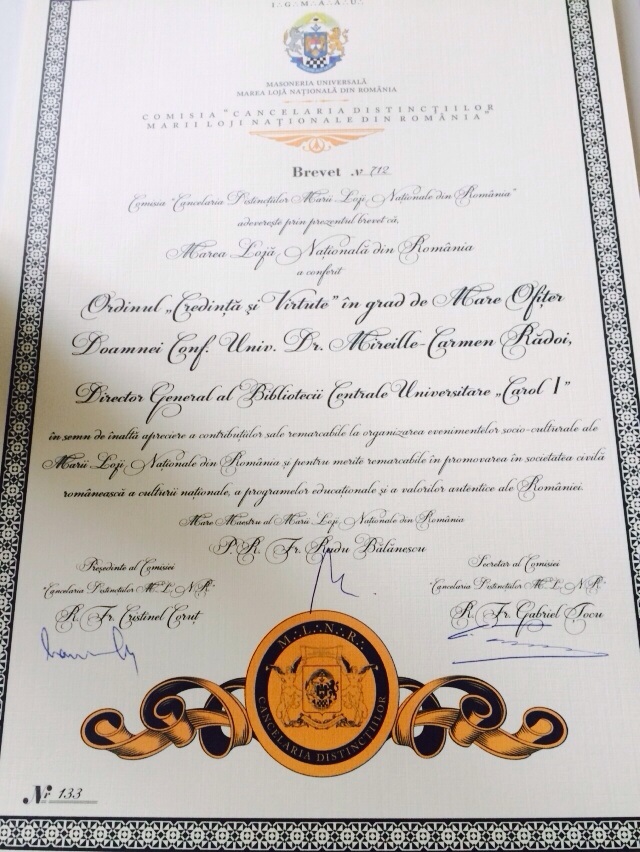 I∴G∴M∴A∴A∴U∴
MASONERIA UNIVERSALĂ
MAREA LOJĂ NAȚIONALĂ DIN ROMÂNIA
COMISIA "CANCELARIA DISTINCȚIILOR
MARII LOJI NAȚIONALE DIN ROMÂNIA"
Brevet № 712
Comisia "Cancelaria Distincțiilor Marii Loji Naționale din România"
adeverește prin prezentul brevet că,
Marea Lojă Națională din România
a conferit
Ordinul „Credință și Virtute” în grad de Mare Ofițer
Doamnei Conf. Univ. Dr. Mireille-Carmen Rădoi,
Director General al Bibliotecii Centrale Universitare „Carol I”
în semn de înaltă apreciere a contribuțiilor sale remarcabile la organizarea evenimentelor socio-culturale ale
Marii Loji Naționale din România și pentru merite remarcabile în promovarea în societatea civilă
românească a culturii naționale, a programelor educaționale și a valorilor autentice ale României.
Mare Maestru al Marii Loji Naționale din România
P. R. Fr. Radu Bălănescu
Președinte al Comisiei
"Cancelaria Distincțiilor M∴L∴N∴R∴"
R. Fr. Cristinel Coruț
Secretar al Comisiei
"Cancelaria Distincțiilor M∴L∴N∴R∴"
R. Fr. Gabriel Tocu
M∴L∴N∴R∴
CANCELARIA DISTINCȚIILOR
Nr 133